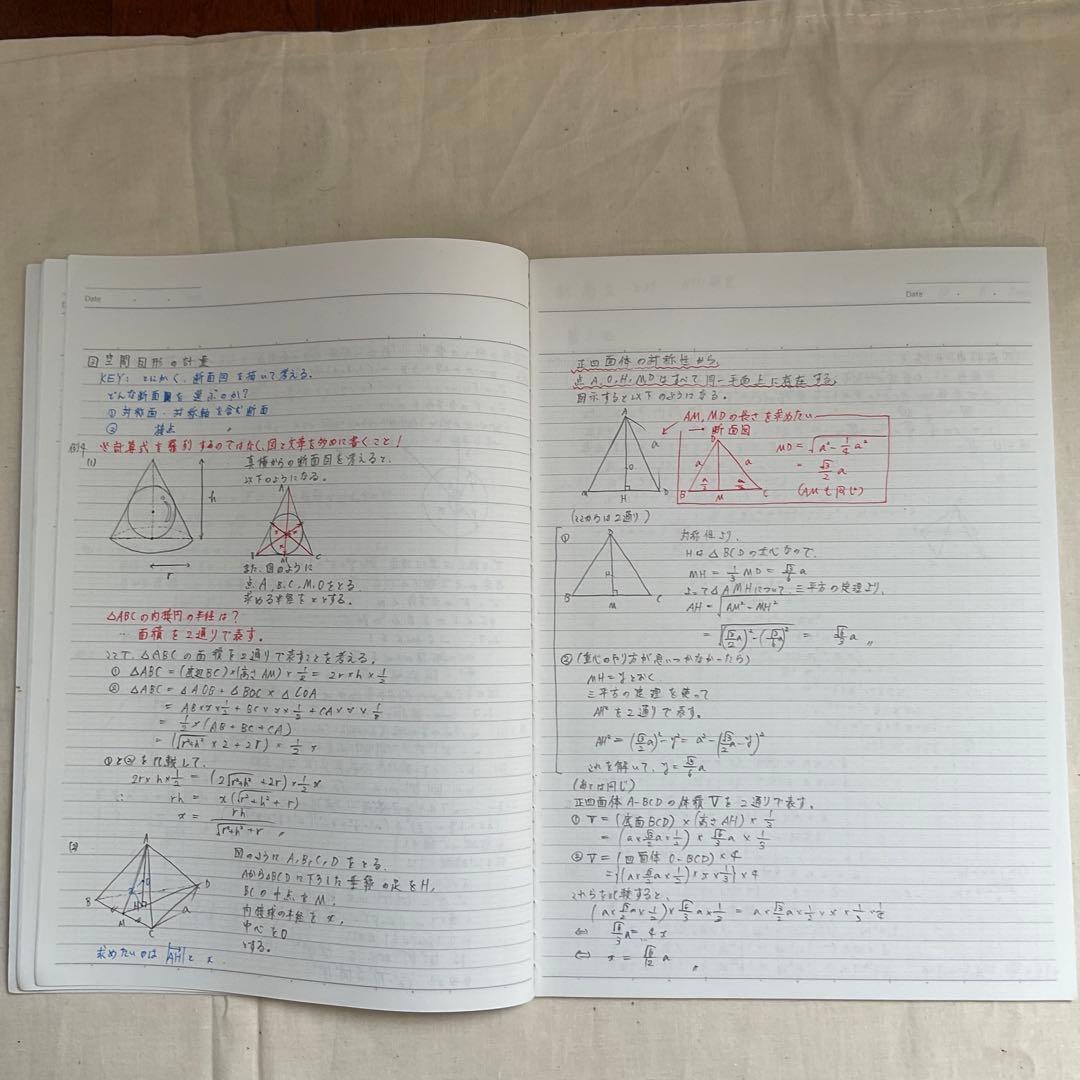 Date
② 空間図形の計量
KEY: とにかく、断面図を描いて考える。
どんな断面図を選ぶのか?
① 対称面・対称軸を含む断面
② 接点 〃
※計算式を羅列するのではなく、図と文章を多めに書くこと!
例4
(1)
真横からの断面図を考えると、
以下のようになる。
h
r
A
B
M
C
また、図のように
点A,B,C,M,Oをとる
求める半径をxとする。
△ABCの内接円の半径は?
… 面積を2通りで表す。
ここで、△ABCの面積を2通りで表すことを考える。
① △ABC = (底辺BC)×(高さAM)×1/2 = 2r×h×1/2
② △ABC = △AOB + △BOC × △COA
= AB×x×1/2 + BC×x×1/2 + CA×x×1/2
= 1/2 x (AB+BC+CA)
= (√r²+h² × 2 + 2r) × 1/2 x
①と②を比較して、
2r×h×1/2 = (2√r²+h² + 2r)×1/2 x
∴ rh = x(√r²+h² + r)
x = rh/√r²+h²+r 〃
(2)
A
B
M
C
D
H
O
x
a
図のようにA,B,C,Dをとる。
Aから△BCDに下ろした垂線の足をH、
BCの中点をM、
内接球の半径をx、
中心をO
とする。
求めたいのは |AH| と x.
Date
正四面体の対称性から、
点A,O,H,M,Dはすべて同一平面上に存在する。
図示すると以下のようになる。
A
a
O
H
D
AM, MDの長さを求めたい
→ 断面図
D
a
a
B
a/2
M
a/2
C
MD = √a² - 1/4 a²
= √3/2 a
(AMも同じ)
(ここからは2通り)
①
D
H
B
M
C
対称性より、
Hは△BCDの重心なので、
MH = 1/3 MD = √3/6 a
よって△AMHについて、三平方の定理より、
AH = √AM² - MH²
= √(√3/2 a)² - (√3/6 a)² = √6/3 a 〃
② (重心のやり方が思いつかなかったら)
MH = y とおく
三平方の定理を使って
AH²を2通りで表す。
AH² = (√3/2 a)² - y² = a² - (√3/2 a - y)²
これを解いて、y = √3/6 a
(あとは同じ)
正四面体A-BCDの体積Vを2通りで表す。
① V = (底面BCD)×(高さAH)×1/3
= (a×√3/2 a×1/2)×√6/3 a×1/3
② V = (四面体O-BCD)×4
= {(a×√3/2 a×1/2)×x×1/3}×4
これらを比較すると、
⇔ √6/3 a = 4x
⇔ x = √6/12 a 〃